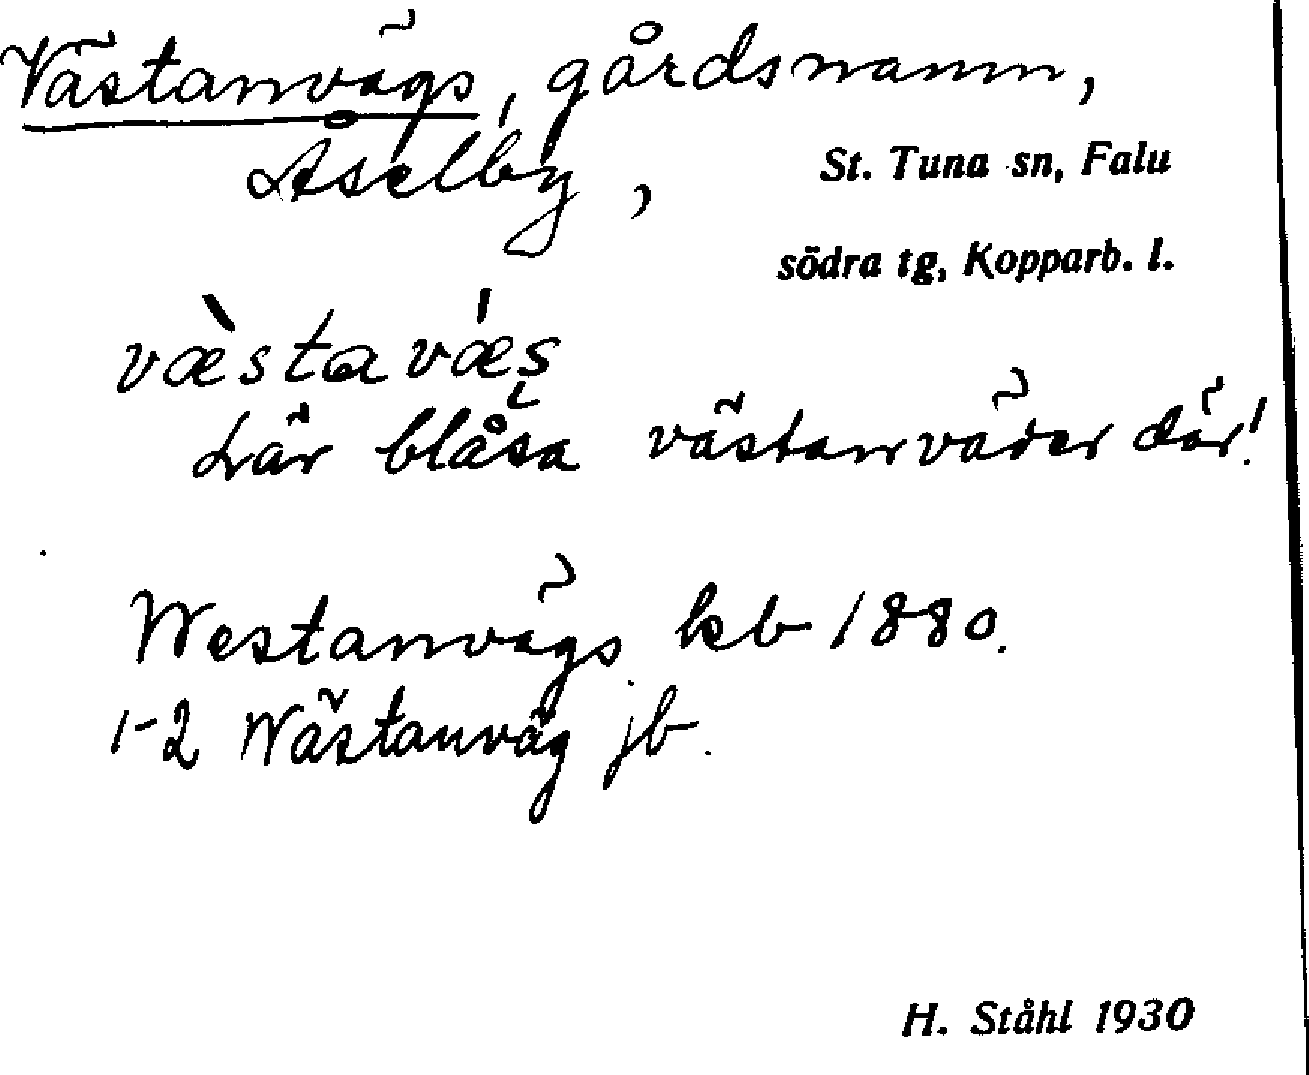 Västanvägs, gårdsnamn,
Åselby,
St. Tuna sn, Falu
södra tg, Kopparb. l.
væ̀stavǽs̨
Lär blåsa västanväder där!
Westanvägs kb 1880.
1-2 Wästanväg jb.
H. Ståhl 1930